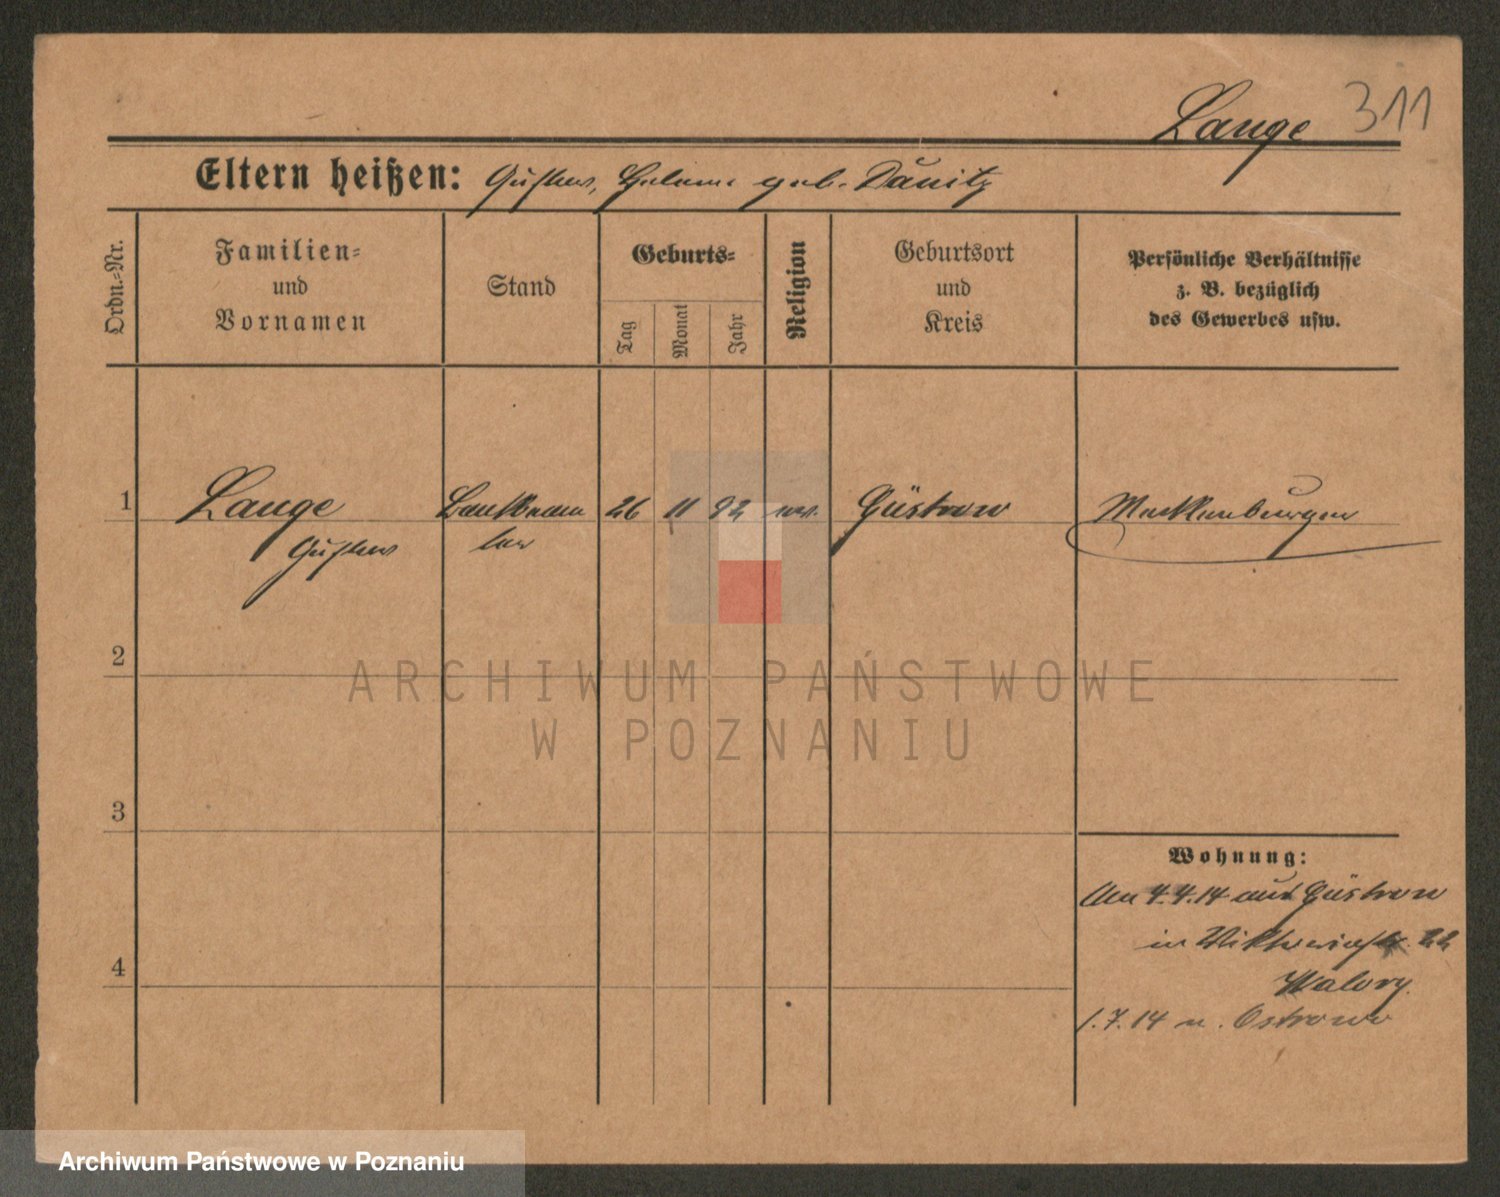 Lange 311
Eltern heißen: Gustav, Helene geb. Dänitz
Ordn.-Nr.
Familien-
und
Vornamen
Stand
Geburts-
Tag
Monat
Jahr
Religion
Geburtsort
und
Kreis
Persönliche Verhältnisse
z. B. bezüglich
des Gewerbes usw.
1 Lange Bankbeam 26 11 92 ev. Güstrow Mecklenburger
Gustav ter
2
3
4
Wohnung:
Am 4.4.14 aus Güstrow
in Viktoriastr. 22
1.7.14 n. Ostrowo
ARCHIWUM PAŃSTWOWE
W POZNANIU
Archiwum Państwowe w Poznaniu